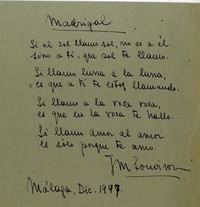 Madrigal
Si al sol llamo sol, no es a él
sino a ti, que sol te llamo.
Si llamo luna a la luna,
es que a ti te estoy llamando.
Si llamo a la rosa rosa,
es que en la rosa te hallo.
Si llamo amor al amor
es solo porque te amo.
Málaga, Dic. 1947.